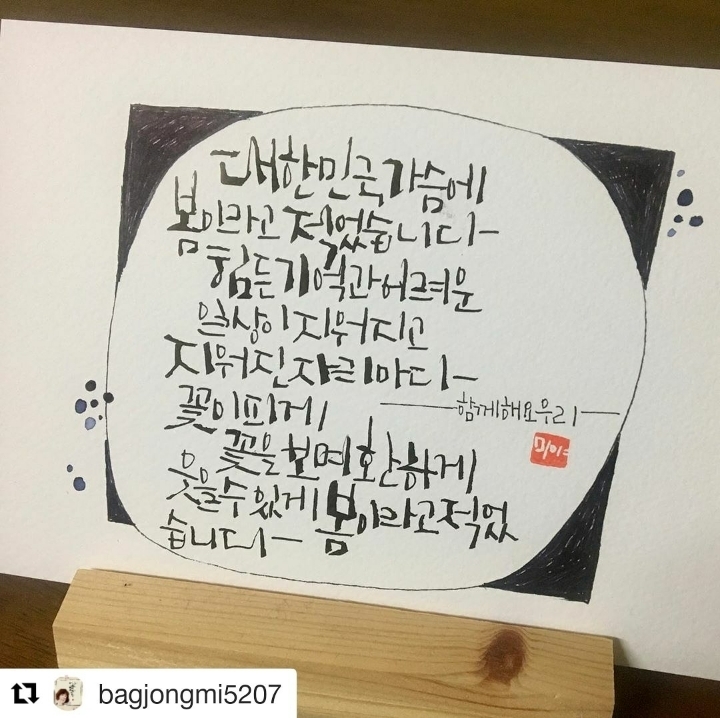 대한민국 가슴에
봄이라고 적었습니다-
힘든기억과 어려운
일상이 지워지고
지워진 자리마다-
꽃이피게
-함께해요우리-
꽃을 보며 환하게
웃을수있게 봄이라고적었
습니다-
bagjongmi5207